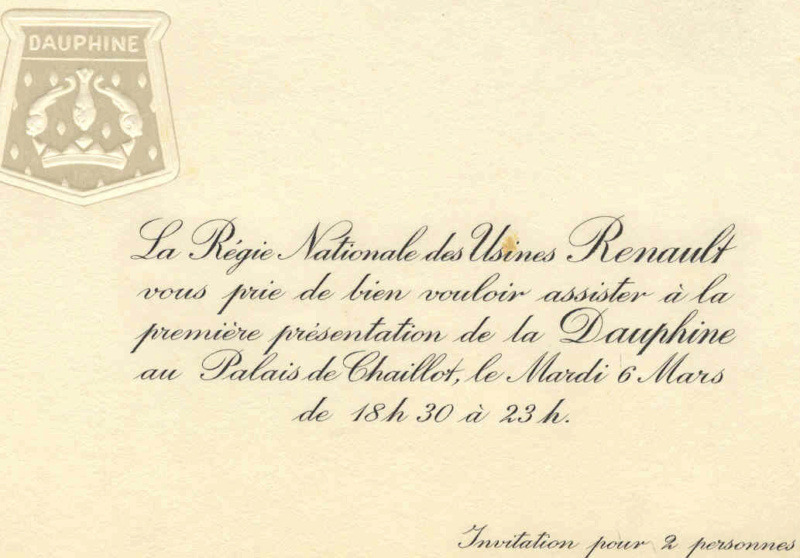 DAUPHINE
La Régie Nationale des Usines Renault
vous prie de bien vouloir assister à la
première présentation de la Dauphine
au Palais de Chaillot, le Mardi 6 Mars
de 18h 30 à 23h.
Invitation pour 2 personnes